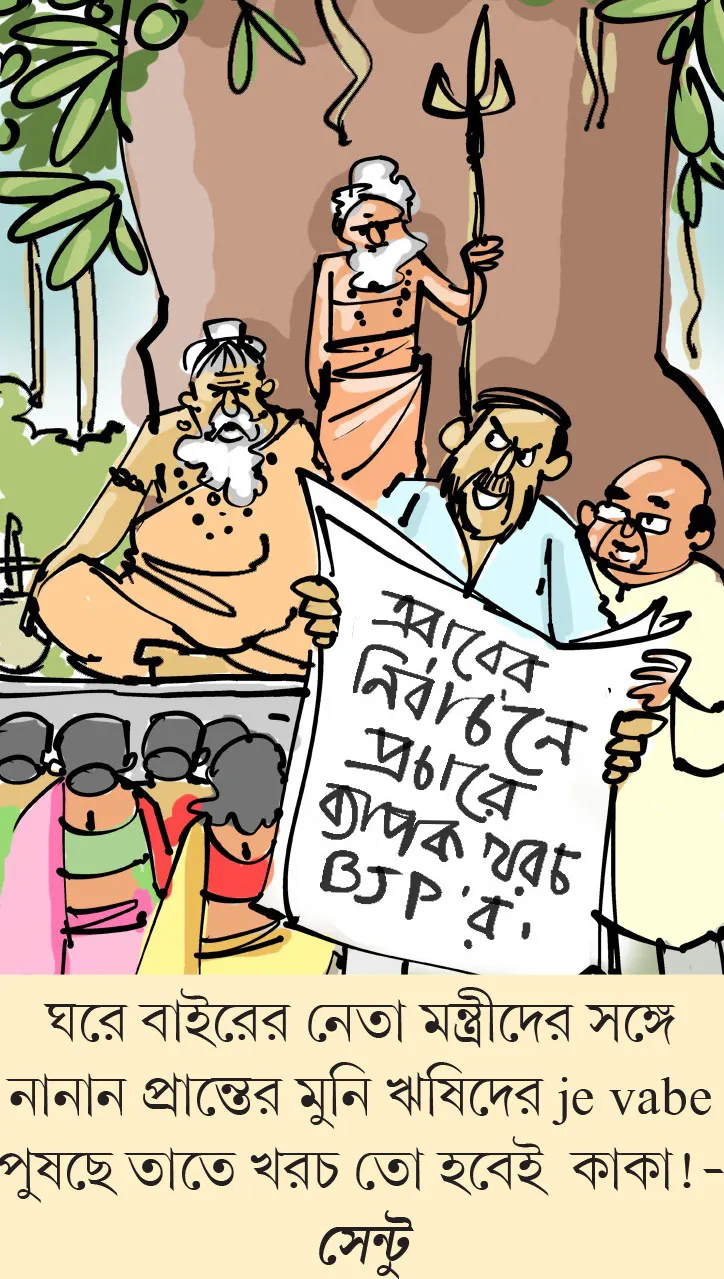 এবারের
নির্বাচনে
প্রচারে
ব্যাপক খরচ
BJP 'র'.
ঘরে বাইরের নেতা মন্ত্রীদের সঙ্গে
নানান প্রান্তের মুনি ঋষিদের je vabe
পুষছে তাতে খরচ তো হবেই কাকা! -
সেন্টু